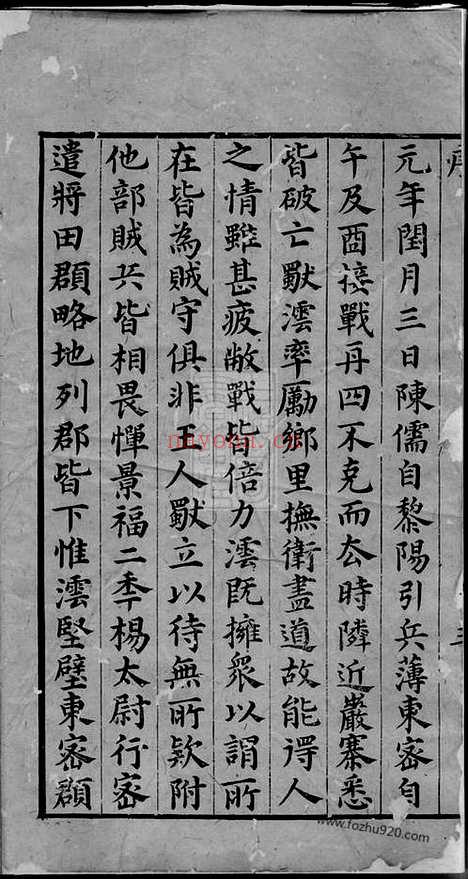 序
元年閏月三日陳儒自黎陽引兵薄東密自
午及酉接戰再四不克而去時隣近巖寨悉
皆破亡獸澐率勵鄉里撫衛盡道故能得人
之情雖甚疲敝戰皆倍力澐既擁衆以謂所
在皆為賊守俱非王人獸立以待無所欵附
他部賊兵皆相畏憚景福二季楊太尉行密
遣將田頵略地列郡皆下惟澐堅壁東密頵
nayona.cn
www.fozhu920.com